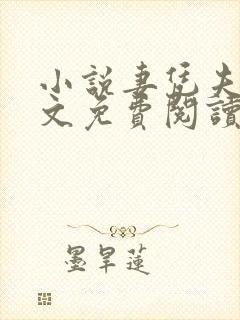 小說妻凭夫
文免費閱讀
墨旱蓮